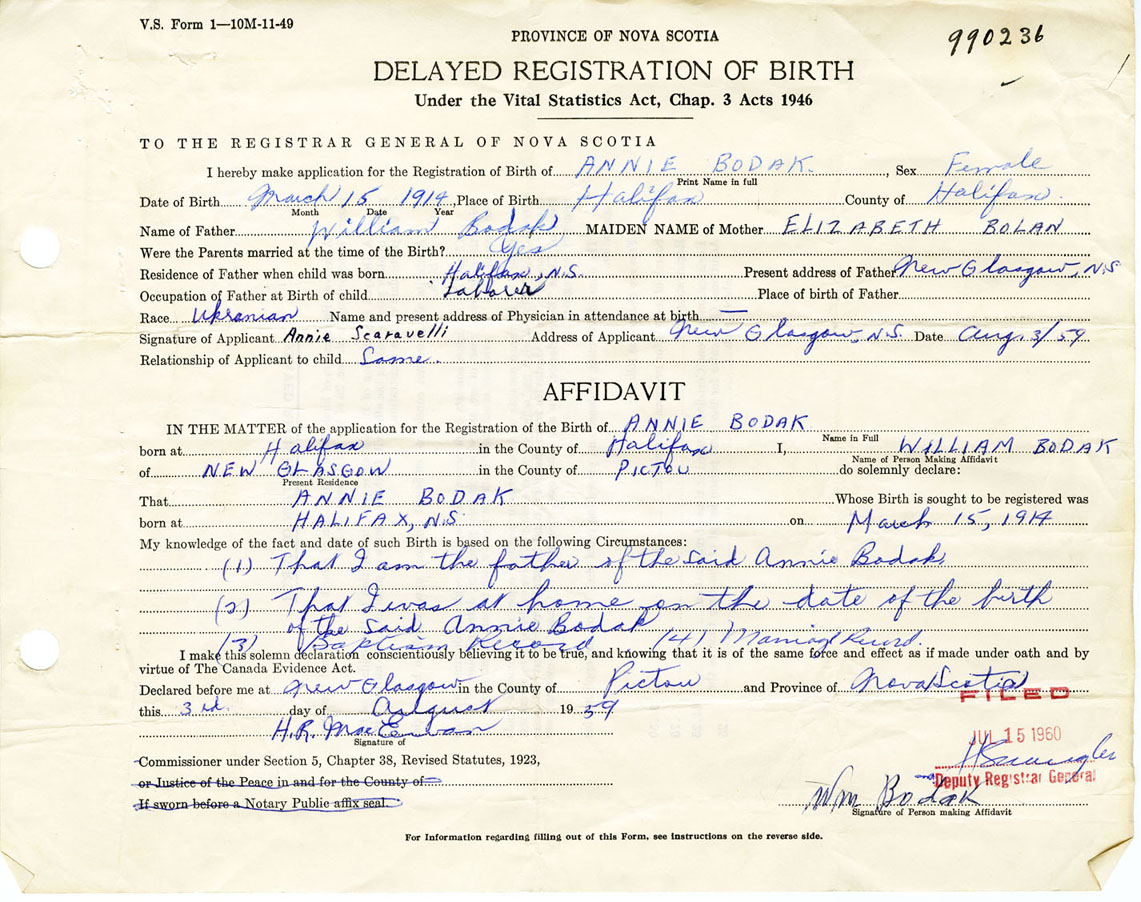 V.S. Form 1—10M-11-49
990236
PROVINCE OF NOVA SCOTIA
DELAYED REGISTRATION OF BIRTH
Under the Vital Statistics Act, Chap. 3 Acts 1946
TO THE REGISTRAR GENERAL OF NOVA SCOTIA
I hereby make application for the Registration of Birth of ANNIE BODAK. , Sex Female
Print Name in full
Date of Birth March 15 1914, Place of Birth Halifax County of Halifax
Month Date Year
Name of Father William Bodak MAIDEN NAME of Mother ELIZABETH BOLAN
Were the Parents married at the time of the Birth? Yes
Residence of Father when child was born Halifax, N.S. Present address of Father New Glasgow, N.S
Occupation of Father at Birth of child Laborer Place of birth of Father
Race Ukranian Name and present address of Physician in attendance at birth —
Signature of Applicant Annie Scaravelli Address of Applicant New Glasgow, N.S. Date Aug. 3/59
Relationship of Applicant to child Same.
AFFIDAVIT
IN THE MATTER of the application for the Registration of the Birth of ANNIE BODAK
Name in Full
born at Halifax in the County of Halifax I, WILLIAM BODAK
Name of Person Making Affidavit
of NEW GLASGOW in the County of PICTOU do solemnly declare:
Present Residence
That ANNIE BODAK Whose Birth is sought to be registered was
born at HALIFAX, N.S. on March 15, 1914
My knowledge of the fact and date of such Birth is based on the following Circumstances:
(1) That I am the father of the said Annie Bodak.
(2) That I was at home on the date of the birth
of the said Annie Bodak
(3) Baptism Record (4) Marriage Record.
I make this solemn declaration conscientiously believing it to be true, and knowing that it is of the same force and effect as if made under oath and by
virtue of The Canada Evidence Act.
Declared before me at New Glasgow in the County of Pictou and Province of Nova Scotia
FILED
this 3rd. day of August 1959
JUL 15 1960
H.R. MacEwan
Signature of
Commissioner under Section 5, Chapter 38, Revised Statutes, 1923,
or Justice of the Peace in and for the County of
Deputy Registrar General
If sworn before a Notary Public affix seal.
Wm Bodak
Signature of Person making Affidavit
For Information regarding filling out of this Form, see instructions on the reverse side.